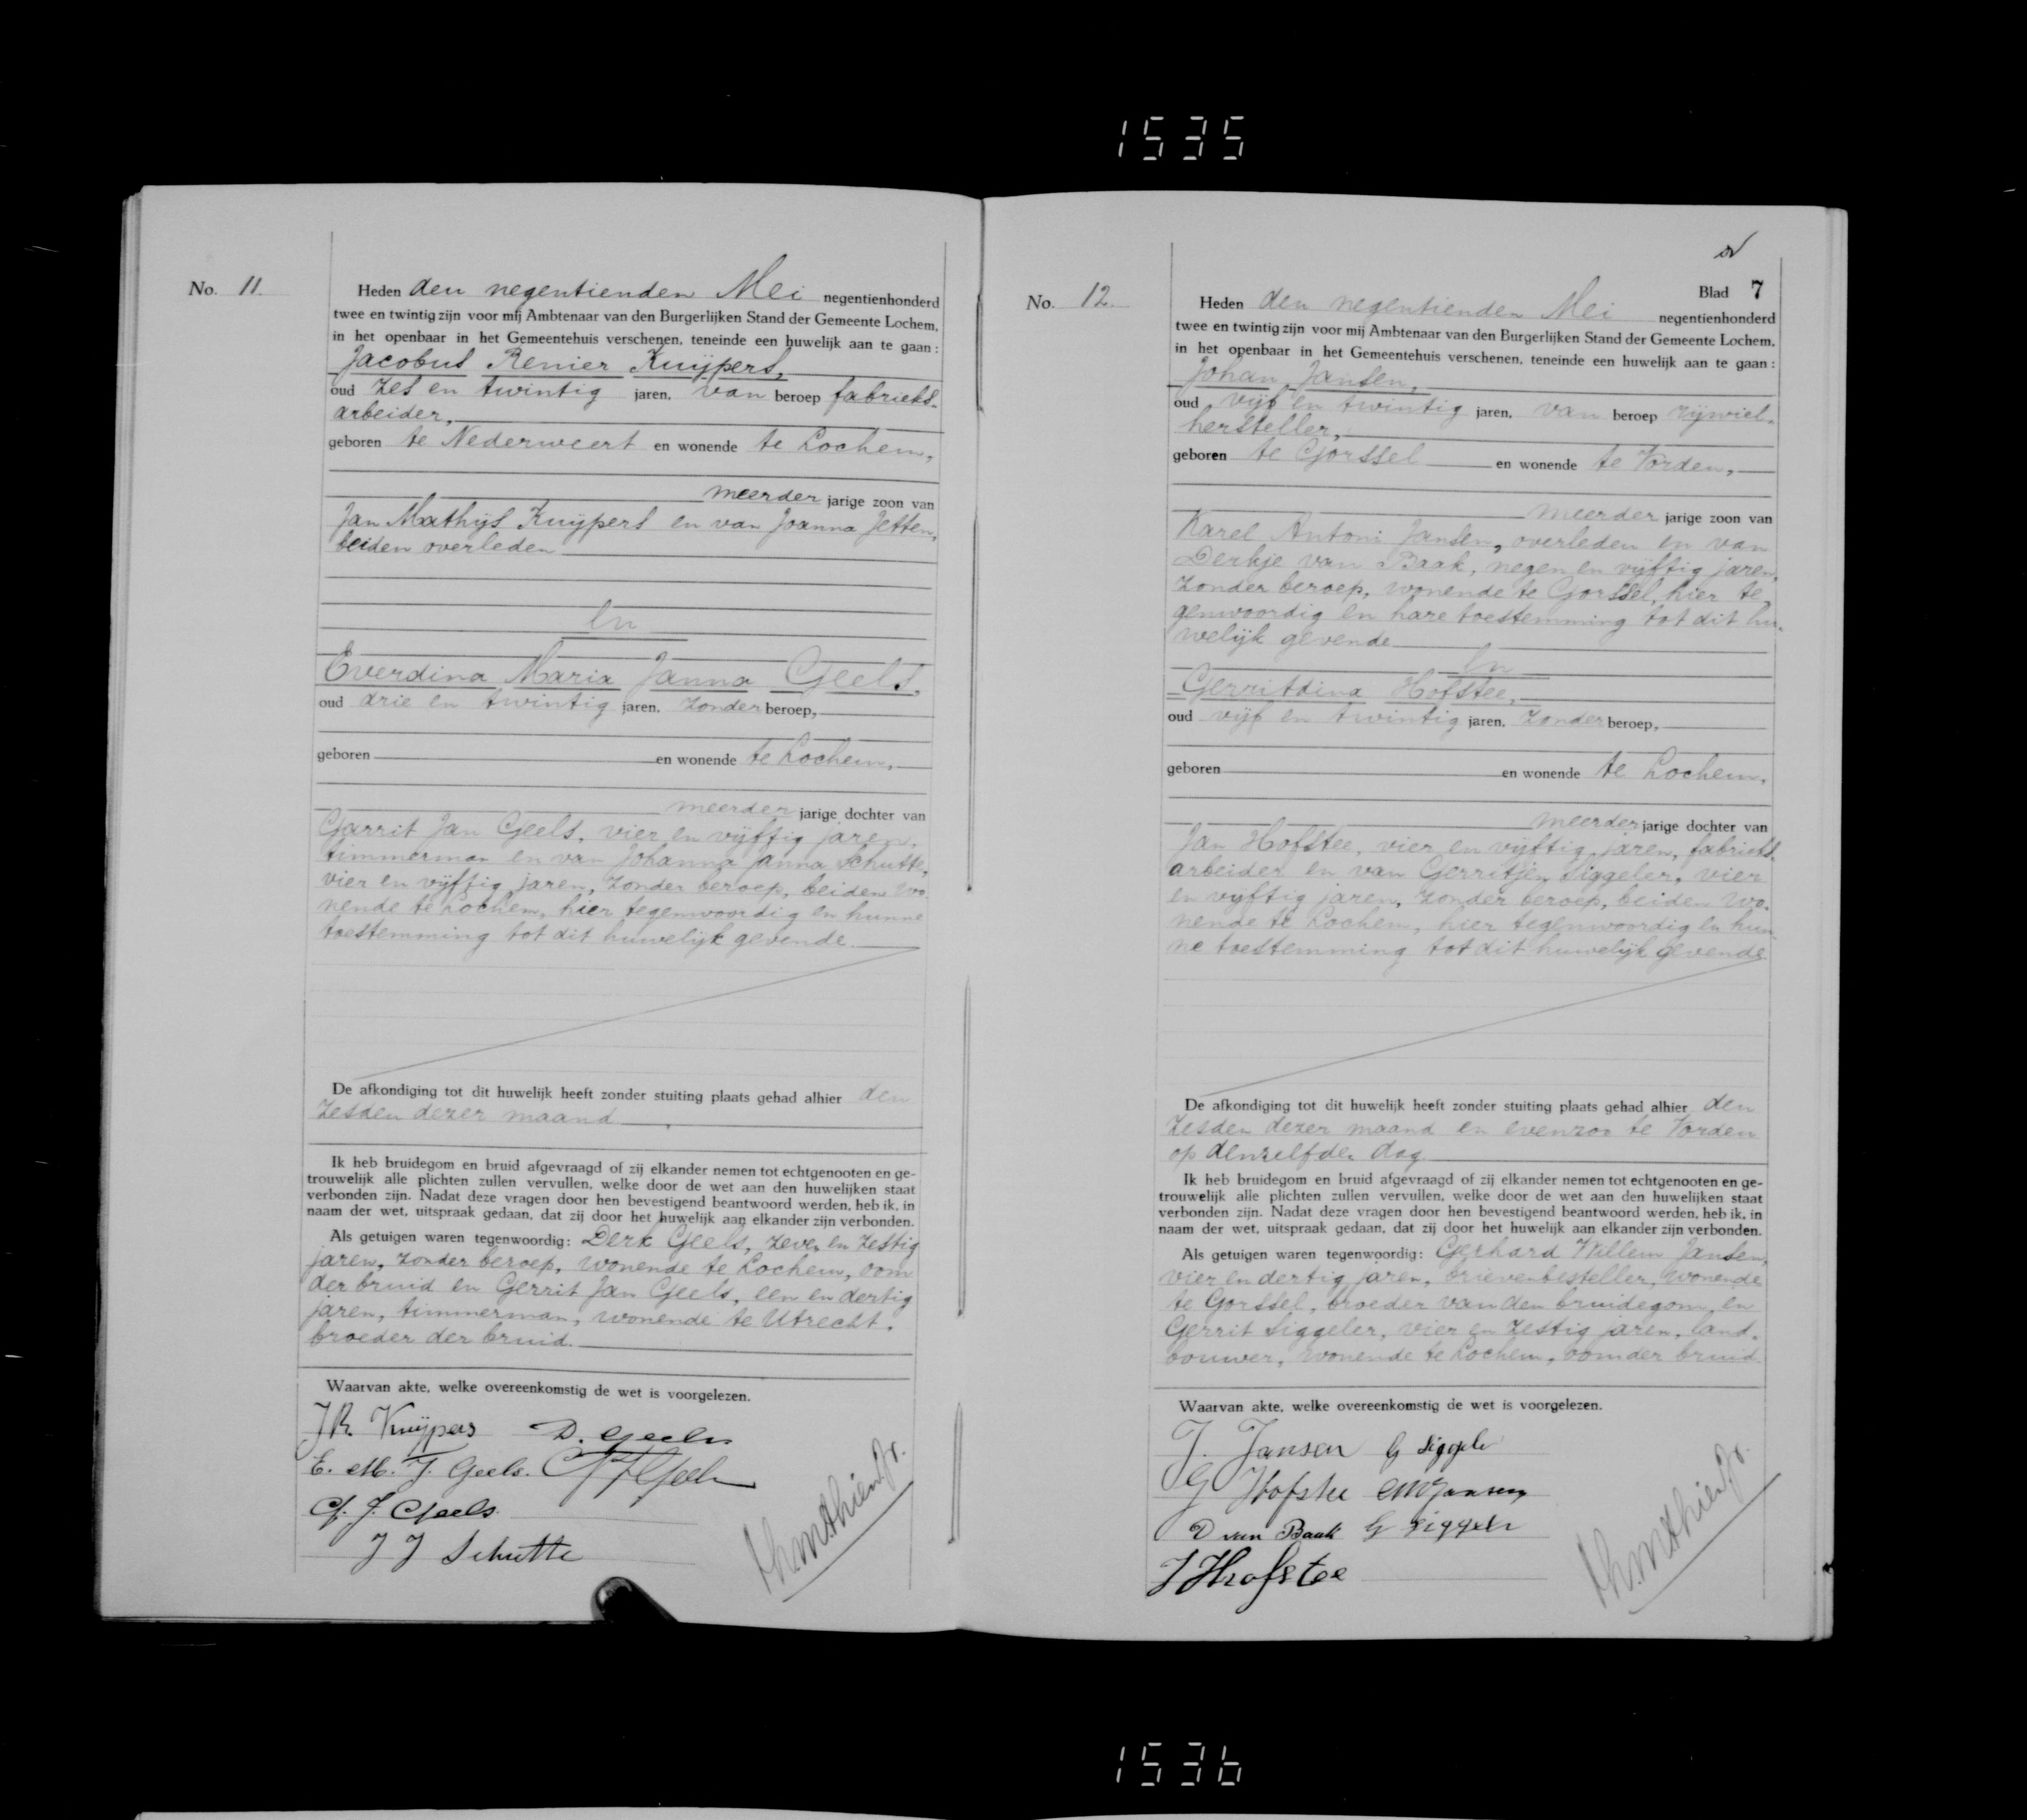 1535
No. 11.
Heden den negentienden Mei negentienhonderd
twee en twintig zijn voor mij Ambtenaar van den Burgerlijken Stand der Gemeente Lochem,
in het openbaar in het Gemeentehuis verschenen, teneinde een huwelijk aan te gaan:
Jacobus Renier Kuijpers,
oud zes en twintig jaren, van beroep fabrieks-
arbeider,
geboren te Nederweert en wonende te Lochem,
meerder jarige zoon van
Jan Mathijs Kuijpers en van Joanna Jetten,
beiden overleden
En
Everdina Maria Janna Geels,
oud drie en twintig jaren, zonder beroep,
geboren en wonende te Lochem,
meerder jarige dochter van
Garrit Jan Geels, vier en vijftig jaren,
timmerman en van Johanna Janna Schutte,
vier en vijftig jaren, zonder beroep, beiden wo-
nende te Lochem, hier tegenwoordig en hunne
toestemming tot dit huwelijk gevende
De afkondiging tot dit huwelijk heeft zonder stuiting plaats gehad alhier den
zesden dezer maand
Ik heb bruidegom en bruid afgevraagd of zij elkander nemen tot echtgenooten en ge-
trouwelijk alle plichten zullen vervullen, welke door de wet aan den huwelijken staat
verbonden zijn. Nadat deze vragen door hen bevestigend beantwoord werden, heb ik, in
naam der wet, uitspraak gedaan, dat zij door het huwelijk aan elkander zijn verbonden.
Als getuigen waren tegenwoordig: Derk Geels, zeven en zestig
jaren, zonder beroep, wonende te Lochem, oom
der bruid en Gerrit Jan Geels, een en dertig
jaren, timmerman, wonende te Utrecht,
broeder der bruid.
Waarvan akte, welke overeenkomstig de wet is voorgelezen.
J R. Kuijpers D. Geels
E. M. J. Geels. G J Geels
G. J. Geels.
J J Schutte
Blad 7
No. 12.
Heden den negentienden Mei negentienhonderd
twee en twintig zijn voor mij Ambtenaar van den Burgerlijken Stand der Gemeente Lochem,
in het openbaar in het Gemeentehuis verschenen, teneinde een huwelijk aan te gaan:
Johan Jansen,
oud vijf en twintig jaren, van beroep rijwiel-
hersteller,
geboren te Gorssel en wonende te Vorden,
meerder jarige zoon van
Karel Antoni Jansen, overleden en van
Derkje van Baak, negen en vijftig jaren,
zonder beroep, wonende te Gorssel, hier te-
genwoordig en hare toestemming tot dit hu-
welijk gevende
En
Gerritdina Hofstee,
oud vijf en twintig jaren, zonder beroep,
geboren en wonende te Lochem,
meerder jarige dochter van
Jan Hofstee, vier en vijftig jaren, fabrieks-
arbeider en van Gerritjen Siggeler, vier
en vijftig jaren, zonder beroep, beiden wo-
nende te Lochem, hier tegenwoordig en hun-
ne toestemming tot dit huwelijk gevende
De afkondiging tot dit huwelijk heeft zonder stuiting plaats gehad alhier den
zesden dezer maand en evenzoo te Vorden
op denzelfden dag
Ik heb bruidegom en bruid afgevraagd of zij elkander nemen tot echtgenooten en ge-
trouwelijk alle plichten zullen vervullen, welke door de wet aan den huwelijken staat
verbonden zijn. Nadat deze vragen door hen bevestigend beantwoord werden, heb ik, in
naam der wet, uitspraak gedaan, dat zij door het huwelijk aan elkander zijn verbonden.
Als getuigen waren tegenwoordig: Gerhard Willem Jansen,
vier en dertig jaren, brievenbesteller, wonende
te Gorssel, broeder van den bruidegom, en
Gerrit Siggeler, vier en zestig jaren, land-
bouwer, wonende te Lochem, oom der bruid.
Waarvan akte, welke overeenkomstig de wet is voorgelezen.
J. Jansen G Siggeler
G Hofstee GWJansen
D van Baak G Siggeler
J Hofstee
1536